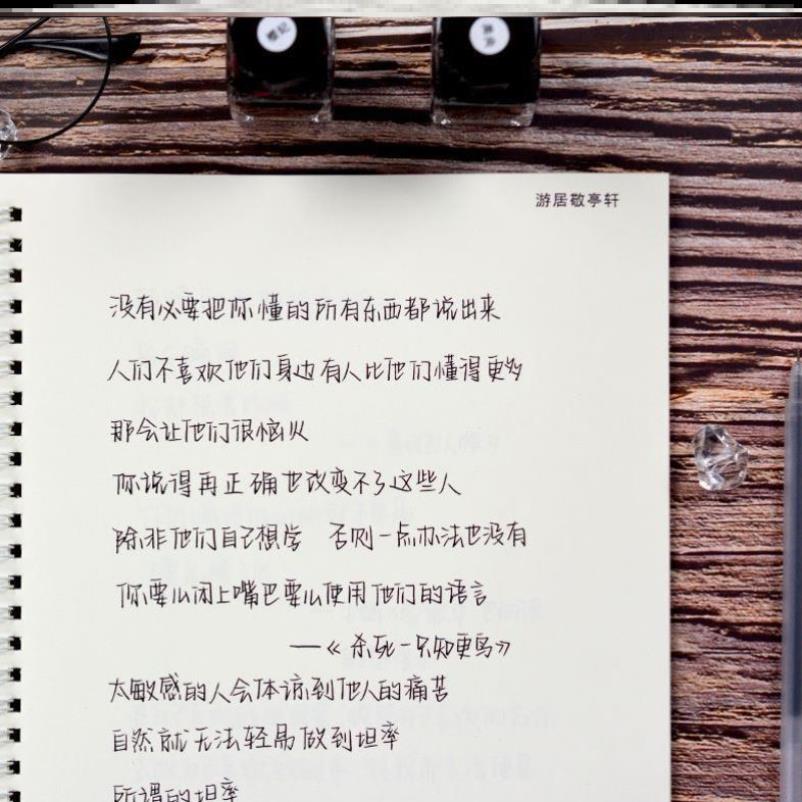 游居敬亭轩
没有必要把你懂的所有东西都说出来
人们不喜欢他们身边有人比他们懂得更多
那会让他们很恼火
你说得再正确也改变不了这些人
除非他们自己想学 否则一点办法也没有
你要么闭上嘴巴要么使用他们的语言
—《杀死一只知更鸟》
太敏感的人会体谅到他人的痛苦
自然就无法轻易做到坦率
所谓的坦率